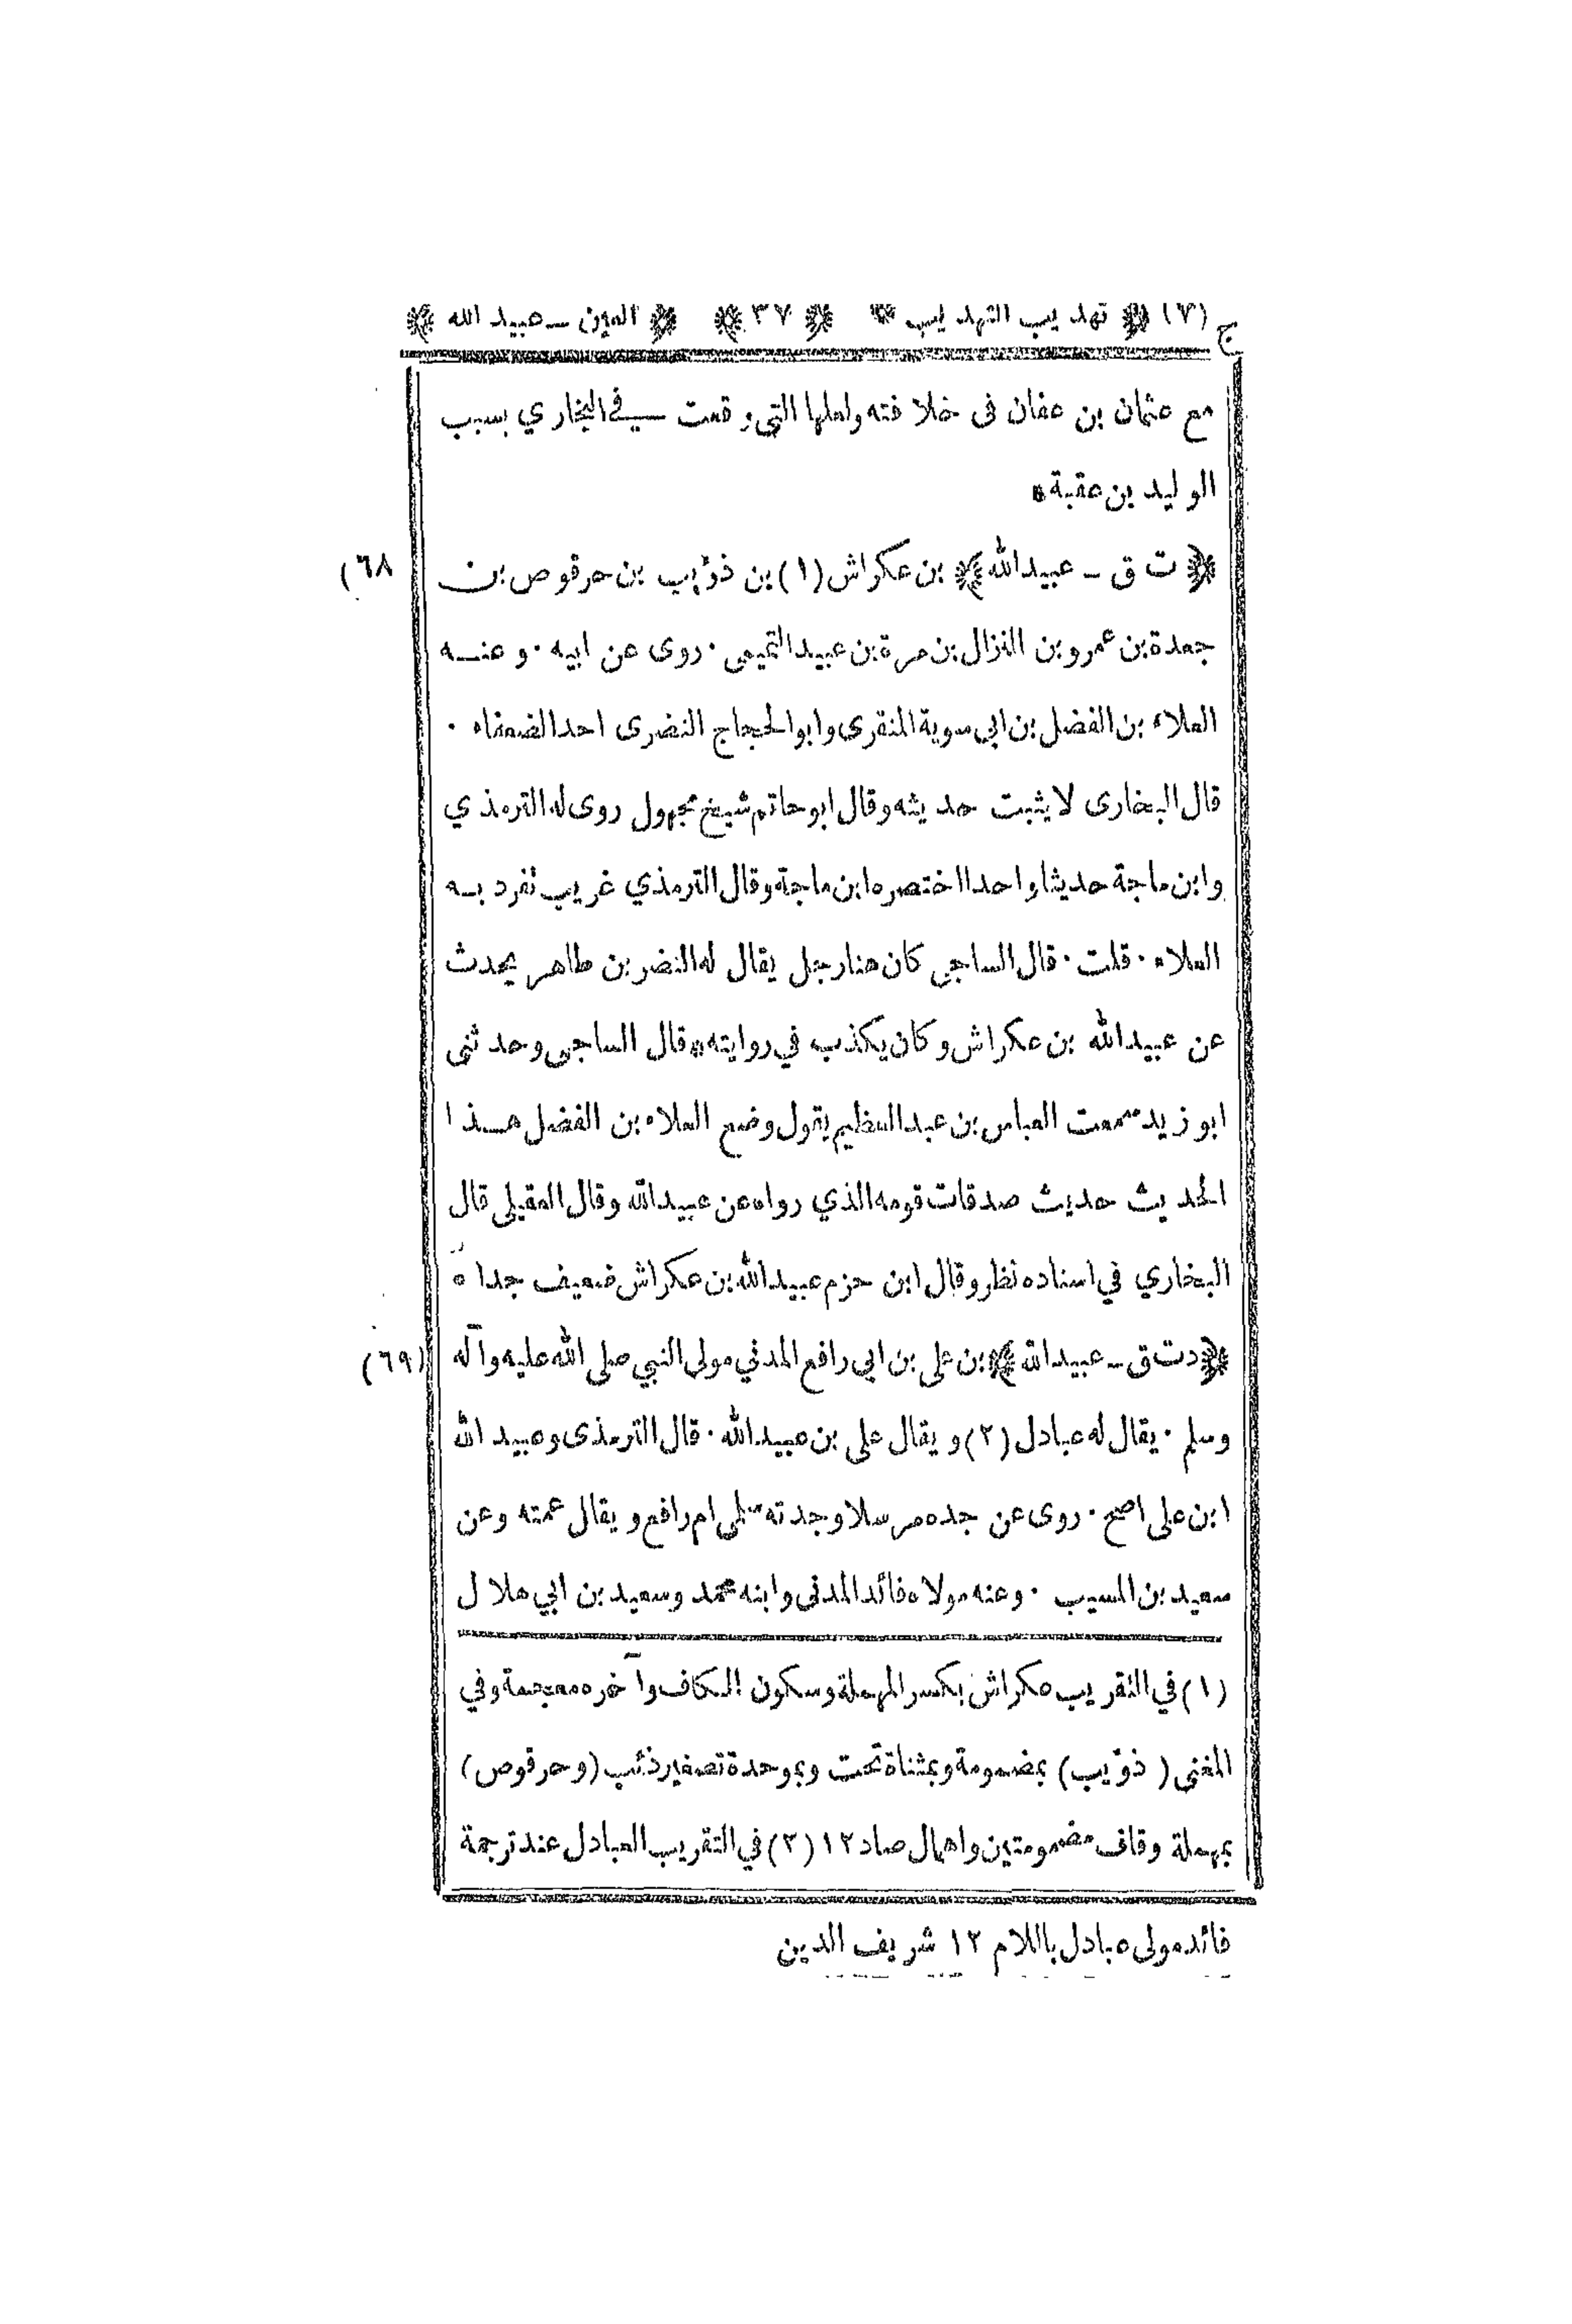 ج (٧) ﴿ تهذيب التهذيب ﴾ ﴿ ٣٧ ﴾ ﴿ العين ــ عبيد الله ﴾
مع عثمان بن عفان فى خلافته ولعلها التي وقعت في البخاري بسبب
الوليد بن عقبة *
﴿ ت ق ــ عبيدالله ﴾ بن عكراش (١) بن ذؤيب بن حرقوص بن (٦٨
جعدة بن عمرو بن النزال بن مرة بن عبيد التميمى ٠ روى عن ابيه ٠ وعنــه
العلاء بن الفضل بن ابي سوية المنقرى وابوالحجاج النضرى احدالضعفاء ٠
قال البخارى لا يثبت حديثه وقال ابوحاتم شيخ مجهول روى له الترمذي
وابن ماجة حديثا واحدا اختصره ابن ماجة وقال الترمذي غريب تفرد بــه
العلاء ٠ قلت ٠ قال الساجي كان هنا رجل يقال له النضر بن طاهر يحدث
عن عبيدالله بن عكراش وكان يكذب في روايته * قال الساجى وحدثنى
ابو زيد سمعت العباس بن عبدالعظيم يقول وضع العلاء بن الفضل هــذا
الحديث حديث صدقات قومه الذي رواه عن عبيدالله وقال العقيلى قال
البخاري في اسناده نظر وقال ابن حزم عبيدالله بن عكراش ضعيف جدا ٥
﴿ دت ق ــ عبيدالله ﴾ بن على بن ابي رافع المدني مولى النبي صلى الله عليه وآله (٦٩)
وسلم ٠ يقال له عبادل (٢) ويقال على بن عبيدالله ٠ قال الترمذى وعبيد الله
ابن على اصح ٠ روى عن جده مرسلا وجدته سلمى ام رافع ويقال عمته وعن
سعيد بن المسيب ٠ وعنه مولاه فائد المدنى وابنه محمد وسعيد بن ابي هلال
(١) في التقريب عكراش بكسر المهملة وسكون الكاف وآخره معجمة وفي
المغنى ( ذؤيب ) بمضمومة وبمثناة تحت وبموحدة تصغير ذئب (وحرقوص)
بمهملة وقاف مضمومتين واهمال صاد ١٢ (٢) في التقريب العبادل عند ترجمة
فائد مولى عبادل باللام ١٢ شريف الدين